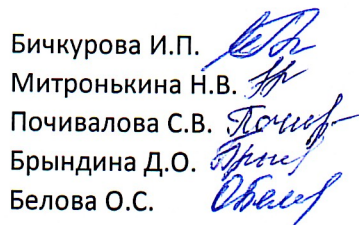 Бичкурова И.П.
Митронькина Н.В.
Почивалова С.В.
Брындина Д.О.
Белова О.С.